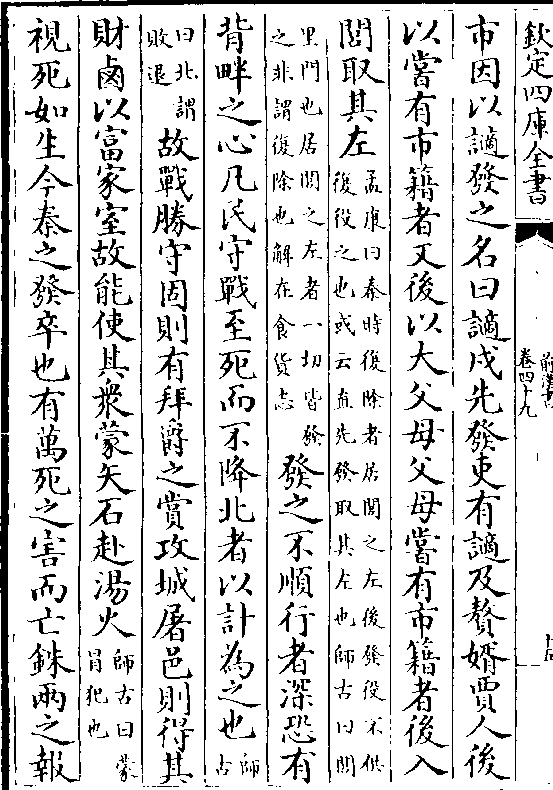 欽定四庫全書
卷四十九
市因以讁發之名曰讁戍先發吏有讁及贅婿賈人後
以嘗有市籍者又後以大父母父母嘗有市籍者後入
閭取其左
孟康曰秦時復除者居閭之左後發役不供
復役之也或云直先發取其左也師古曰閭
里門也居閭之左者一切皆發
之非謂復除也解在食貨志
發之不順行者深恐有
背畔之心凡民守戰至死而不降北者以計為之也
師
古
曰北謂
敗退
故戰勝守固則有拜爵之賞攻城屠邑則得其
財鹵以富家室故能使其衆蒙矢石赴湯火
師古曰蒙
冒犯也
視死如生今秦之發卒也有萬死之害而亡銖兩之報